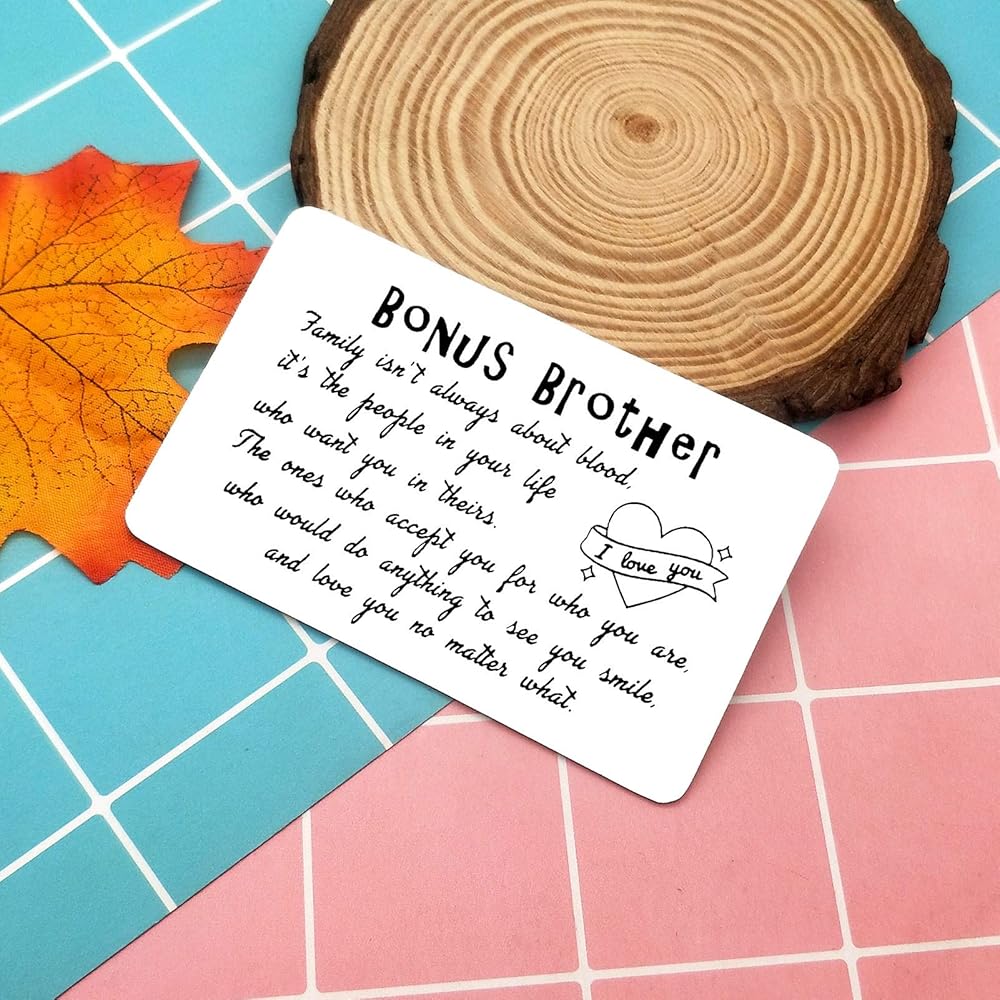 BoNUS BrotHer
Family isn't always about blood,
it's the people in your life
who want you in theirs.
The ones who accept you for who you are,
who would do anything to see you smile,
and love you no matter what.
I love you